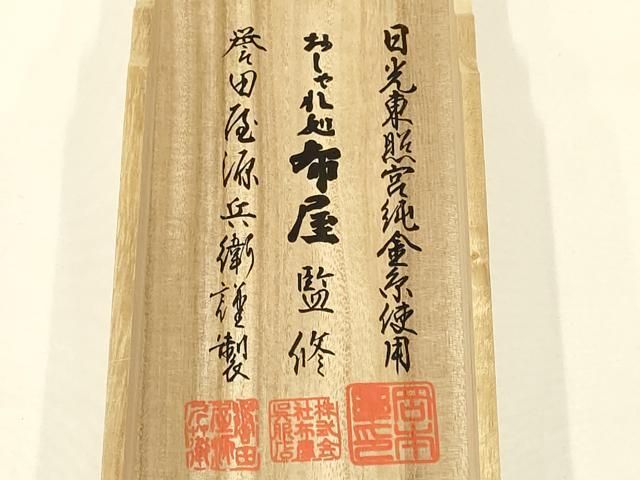 日光東照宮純金糸使用
おしゃれ処布屋監修
誉田屋源兵衛謹製
株式会社布屋呉服店